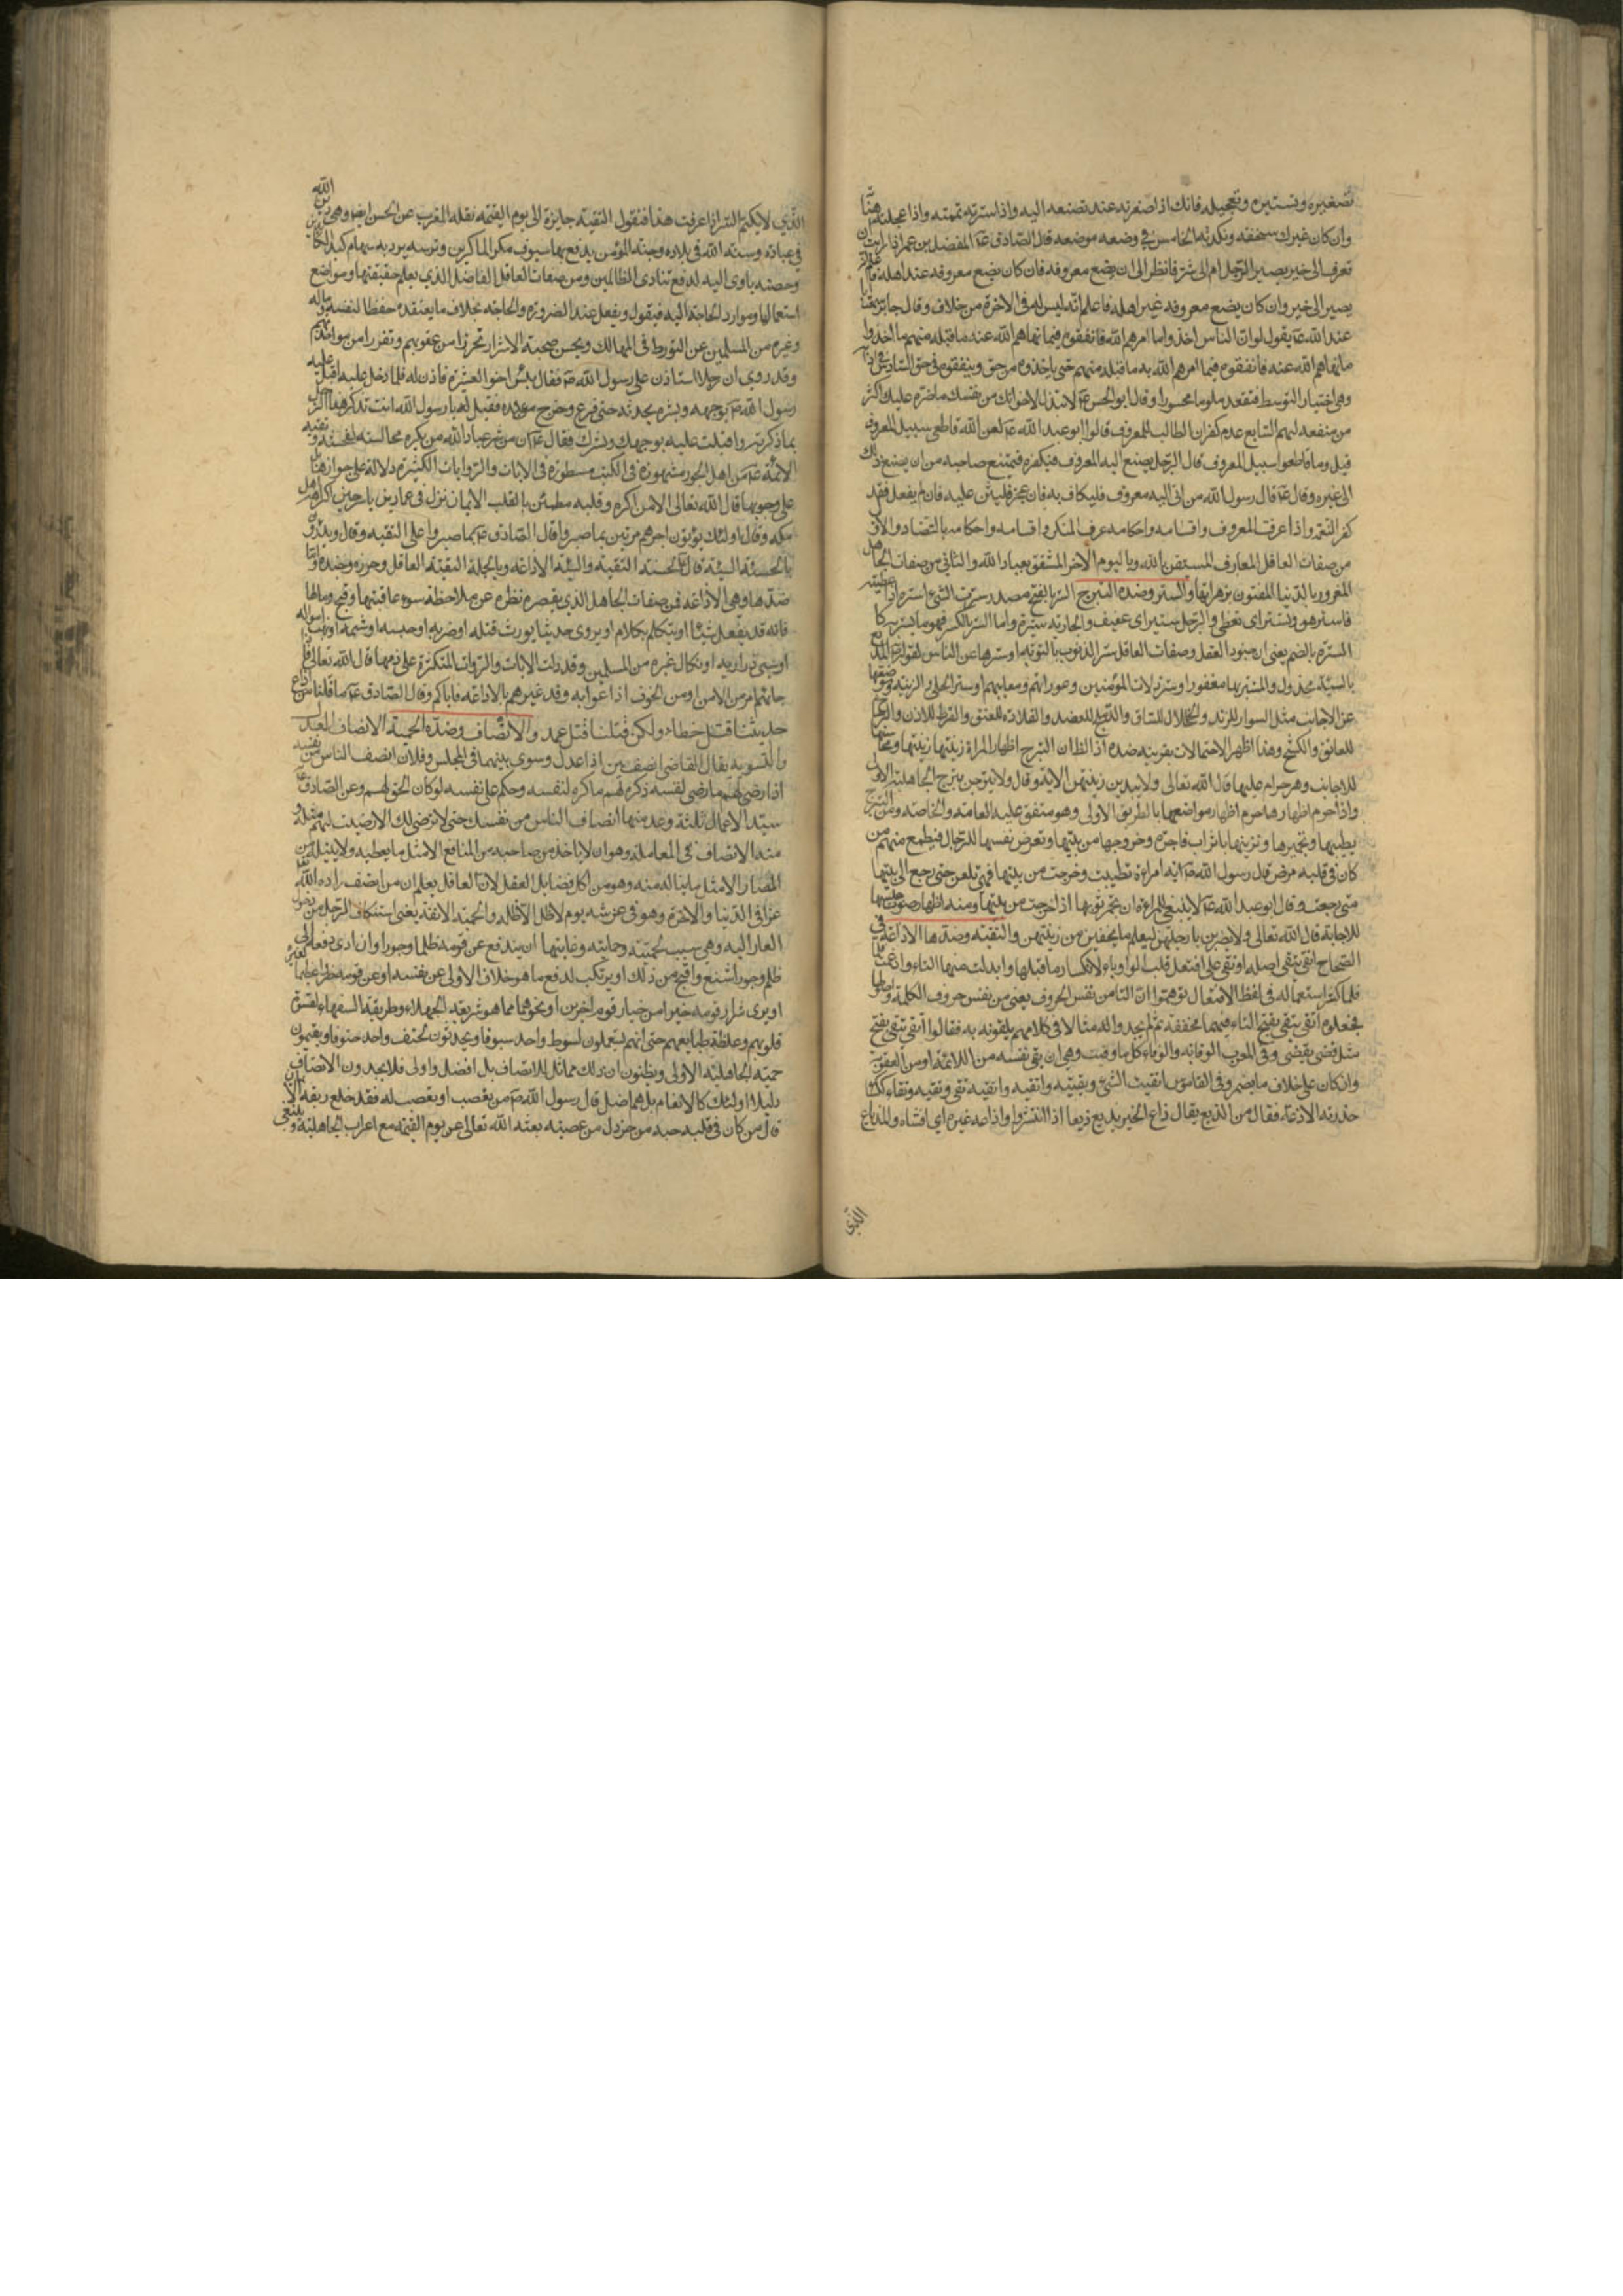 تصغيره وتستيره وتعجيله فانك اذا صغرته عظمته عند من تصنعه اليه واذا سترته تممته واذا عجلته هنأته
وان كان غير ذلك سخفته ونكدته الخامس في وضعه موضعه قال الصادق ع للمفضل بن عمر اذا اردت ان
تعرف الى خير يصير الرجل ام الى شر فانظر الى اين يضع معروفه فان كان يضع معروفه عند اهله فاعلم انه
يصير الى خير وان كان يضع معروفه عند غير اهله فاعلم انه ليس له في الاخرة من خلاف وقال جابر سمعت ابا
عبد الله ع يقول لو ان الناس اخذوا ما امرهم الله فانفقوه فيما نهاهم الله عنه ما قبله منهم ولو اخذوا
ما نهاهم الله عنه فانفقوه فيما امرهم الله به ما قبله منهم حتى ياخذوه من حق وينفقوه في حق السادس
وهي اختيار التوسط فتقعد ملوما محسورا وقال ابو الحسن ع لا تبذل لاخوانك من نفسك ما ضره عليك اكثر
من منفعته لهم السابع عدم كفران الطالب للمعروف قالوا ابو عبد الله ع لعن الله قاطعي سبيل المعروف
قيل وما قاطعوا سبيل المعروف قال الرجل يصنع اليه المعروف فيكفره فيمتنع صاحبه من ان يصنع ذلك
الى غيره وقال ع قال رسول الله من اتى اليه معروف فليكاف به فان عجز فليثن عليه فان لم يفعل فقد
كفر النعمة واذا عرفت المعروف واقسامه واحكامه عرف المنكر واقسامه واحكامه بالتضاد والاول
من صفات العاقل العارف المستيقن بالله وباليوم الاخر المشفق بعباد الله والثاني من صفات الجاهل
المغرور بالدنيا المفتون بزهراتها والستر وضده التبرج الستر بالفتح مصدر سترت الشيء استره اذا غطيته
فاستر هو وتستر اى تغطى والرجل ستير اى عفيف والجارية ستيرة واما الستر بالكسر فهو ما يستر به كا
السترة بالضم يعني ان من جنود العقل وصفات العاقل ستر الذنوب بالتوبة او سترها عن الناس لقوله المذيع
بالسيئة مخذول والمستتر بها مغفور او ستر زلات المؤمنين وعوراتهم ومعايبهم او ستر الحلي والزينة وموضعها
عن الاجانب مثل السوار للزند والخلخال للساق والدملج للعضد والقلادة للعنق والقرط للاذن والوشاح
للعاتق والكشح وهذا اظهر الاحتمالات بقرينة ضده اذ الظاهر ان التبرج اظهار المراة زينتها
للاجانب وهو حرام عليها قال الله تعالى ولا يبدين زينتهن الاية وقال ولا تبرجن تبرج الجاهلية الاولى
واذا حرم اظهارها حرم اظهار مواضعها بالطريق الاولى وهو متفق عليه العامة والخاصة ومن التبرج
كان في قلبه مرض قال رسول الله ص اية امراة تطيبت وخرجت من بيتها فهي تلعن حتى ترجع الى بيتها
متى رجعت وقال ابو عبد الله ع لا ينبغي للمراة ان تجمر ثوبها اذا خرجت من بيتها ومنه اظهار صوت حليها
للاجابة قال الله تعالى ولا يضربن بارجلهن ليعلم ما يخفين من زينتهن والتقية وضدها الاذاعة في
الصحاح اتقى يتقي اصله اوتقى على افتعل قلبت الواو ياء لانكسار ما قبلها وابدلت منها التاء وادغمت
فلما كثر استعماله في لفظ الافتعال توهموا ان التاء من نفس الحروف يعني من نفس حروف الكلمة
فجعلوه اتقى يتقي بفتح التاء فيهما مخففة ثم لم يجدوا له مثالا في كلامهم يلحقونه به فقالوا تقى يتقي
مثل قضى يقضي وفي المغرب الوقاية والوقاء كل ما وقيت وهي ان يقي نفسه من اللائمة او من العقوبة
وان كان على خلاف ما يضمر وفي القاموس اتقيت الشيء وتقيته
حذرته الاذاعة افعال من الذيع يقال ذاع الخبر يذيع ذيعا اذا انتشر واذاعه غيره اى افشاه والمذياع
الذي
الذي لا يكتم السر اذا عرفت هذا فنقول التقية جايزة الى يوم القيمة نقله المغرب عن الحسن ايضا وهي دين الله
في عباده وسنة الله في بلاده وجنة المؤمن يدفع بها سيوف مكر الماكرين وترسه يرد به سهام كيد
وحصنه ياوى اليه لدفع تنادي الظالمين ومن صفات العاقل الفاضل الذي يعلم حقيقتها ومواضع
استعمالها وموارد الحاجة اليه فيقول ويفعل عند الضرورة والحاجة بخلاف ما يعتقده حفظا لنفسه وماله
وغيره من المسلمين عن التورط في المهالك ويحسن صحبة الاشرار تحرزا من عقوبتهم وتفررا من مؤاخذتهم
وقد روي ان رجلا استاذن على رسول الله ص فقال بئس اخو العشيرة فاذن له فلما دخل عليه اقبل عليه
رسول الله ص بوجهه وبشره يحدثه حتى فرغ وخرج من عنده فقيل له يا رسول الله انت تذكر هذا الرجل
بما ذكرته واقبلت عليه بوجهك وبشرك فقال ع ان من شر عباد الله من يكره مجالسته لفحشه وتقية
الائمة ع من اهل الجور مشهورة وفي الكتب مسطورة وفي الايات والروايات الكثيرة دلالة على جوازها بل
على وجوبها قال الله تعالى الا من اكره وقلبه مطمئن بالايمان نزل في عمار بن ياسر حين اكرهه اهل
مكة وقال اولئك يؤتون اجرهم مرتين بما صبروا قال الصادق ع بما صبروا على التقية وقال ويدرؤن
بالحسنة السيئة قال ع الحسنة التقية والسيئة الاذاعة وبالجملة التقية العاقل وحرزه وجنده واما
ضدها وهي الاذاعة فمن صفات الجاهل الذي يقصر نظره عن ملاحظة سوء عاقبتها وقبح ومالها
فانه قد يفعل شيئا او يتكلم بكلام او يروي حديثا يورث قتله او ضربه او حبسه او شتمه او نهب امواله
او سبي ذراريه او نكال غيره من المسلمين وقد دلت الايات والروايات المتكثرة على ذمها قال الله تعالى فاذا
جائهم امر من الامن او من الخوف اذاعوا به وقد عيرهم بالاذاعة فاياكم وقال الصادق ع ما قتلنا من اذاع
حديثنا قتل خطاء ولكن قتلنا قتل عمد والانصاف وضده الحمية الانصاف العدل
والتسوية يقال القاضي انصف بين اذا عدل وسوى بينهما في المجلس وفلان انصف الناس من نفسه
اذا رضي لهم ما رضي لنفسه وكره لهم ما كره لنفسه وحكم على نفسه لو كان الحق لهم وعن الصادق ع
سيد الاعمال ثلثة وعد منها انصاف الناس من نفسك حتى لا ترضى لك الا رضيت لهم مثله و
منه الانصاف في المعاملة وهو ان لا ياخذ من صاحبه من المنافع الا مثل ما يعطيه ولا ينيله من
المضار الا مثل ما يناله منه وهو من اكل فضايل العقل لان العاقل يعلم ان من انصف زاده الله
عزا في الدنيا والاخرة وهو في عرشه يوم لا ظل الا ظله والحمية الانفة يعني استنكاف الرجل من
العار اليه وهي سبب لحميته وحمايته وغايتها ان يدفع عن قومه ظلما وجورا وان ادى دفعه الى
ظلم وجور اشنع واقبح من ذلك او يرتكب لدفع ما هو خلاف الاولى عن نفسه او عن قومه
او يرى شرار قومه خيرا من خيار قوم اخرين او نحوهما مما هو شريعة الجهلاء وطريقة السفهاء لقسوة
قلوبهم وغلظة طبايعهم حتى انهم يستعملون لسوط واحد سيوفا ويجدثون لحتف واحد حتوفا ويقيمون
حمية الجاهلية الاولى ويظنون ان ذلك مماثل للانصاف بل افضل واولى فلا يجدون الانصاف
دليلا اولئك كالانعام بل هم اضل قال رسول الله ص من تعصب او تعصب له فقد خلع ربقة الايمان
قال من كان في قلبه حبة من خردل من عصبية بعثه الله تعالى عز يوم القيمة مع اعراب الجاهلية